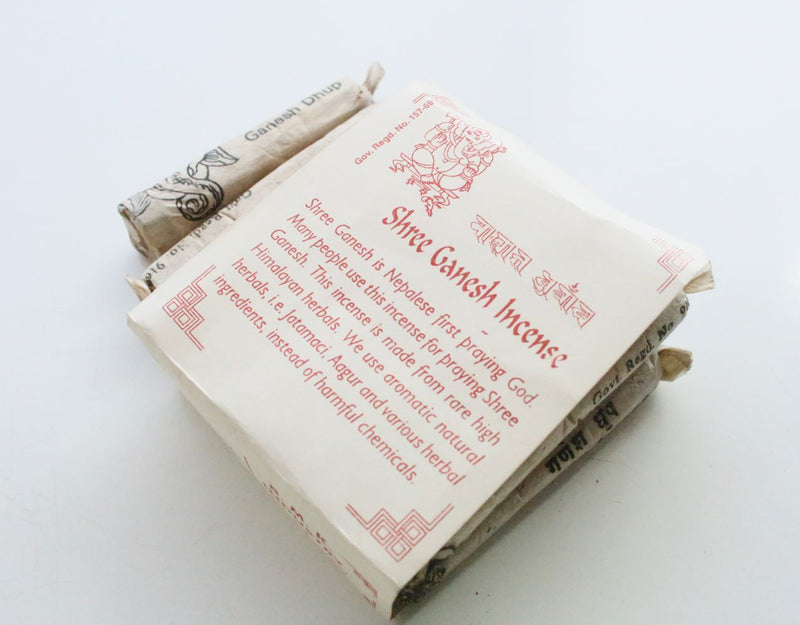 Ganesh Dhup
Gov. Regd. No. 157-69
Shree Ganesh Incense
Shree Ganesh is Nepalese first praying God.
Many people use this incense for praying Shree
Ganesh. This incense is made from rare high
Himalayan herbals. We use aromatic natural
herbals, i.e. Jatamaci, Aagur and various herbal
ingredients, instead of harmful chemicals.
Govt. Regd. No
गणेश धुप